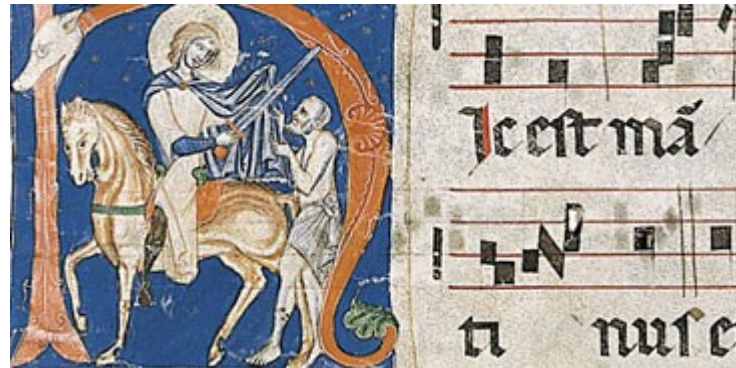 HIc eſt mã
ti nuſ e